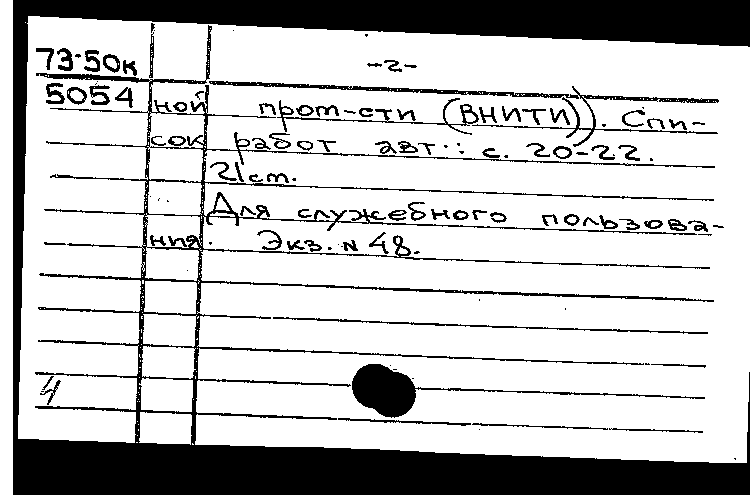 73-50к -2-
5054 ной пром-сти (ВНИТИ)). Спи-
сок работ авт.: с. 20-22.
21 cm.
Для служебного пользова-
ния. Экз. N 48.
4